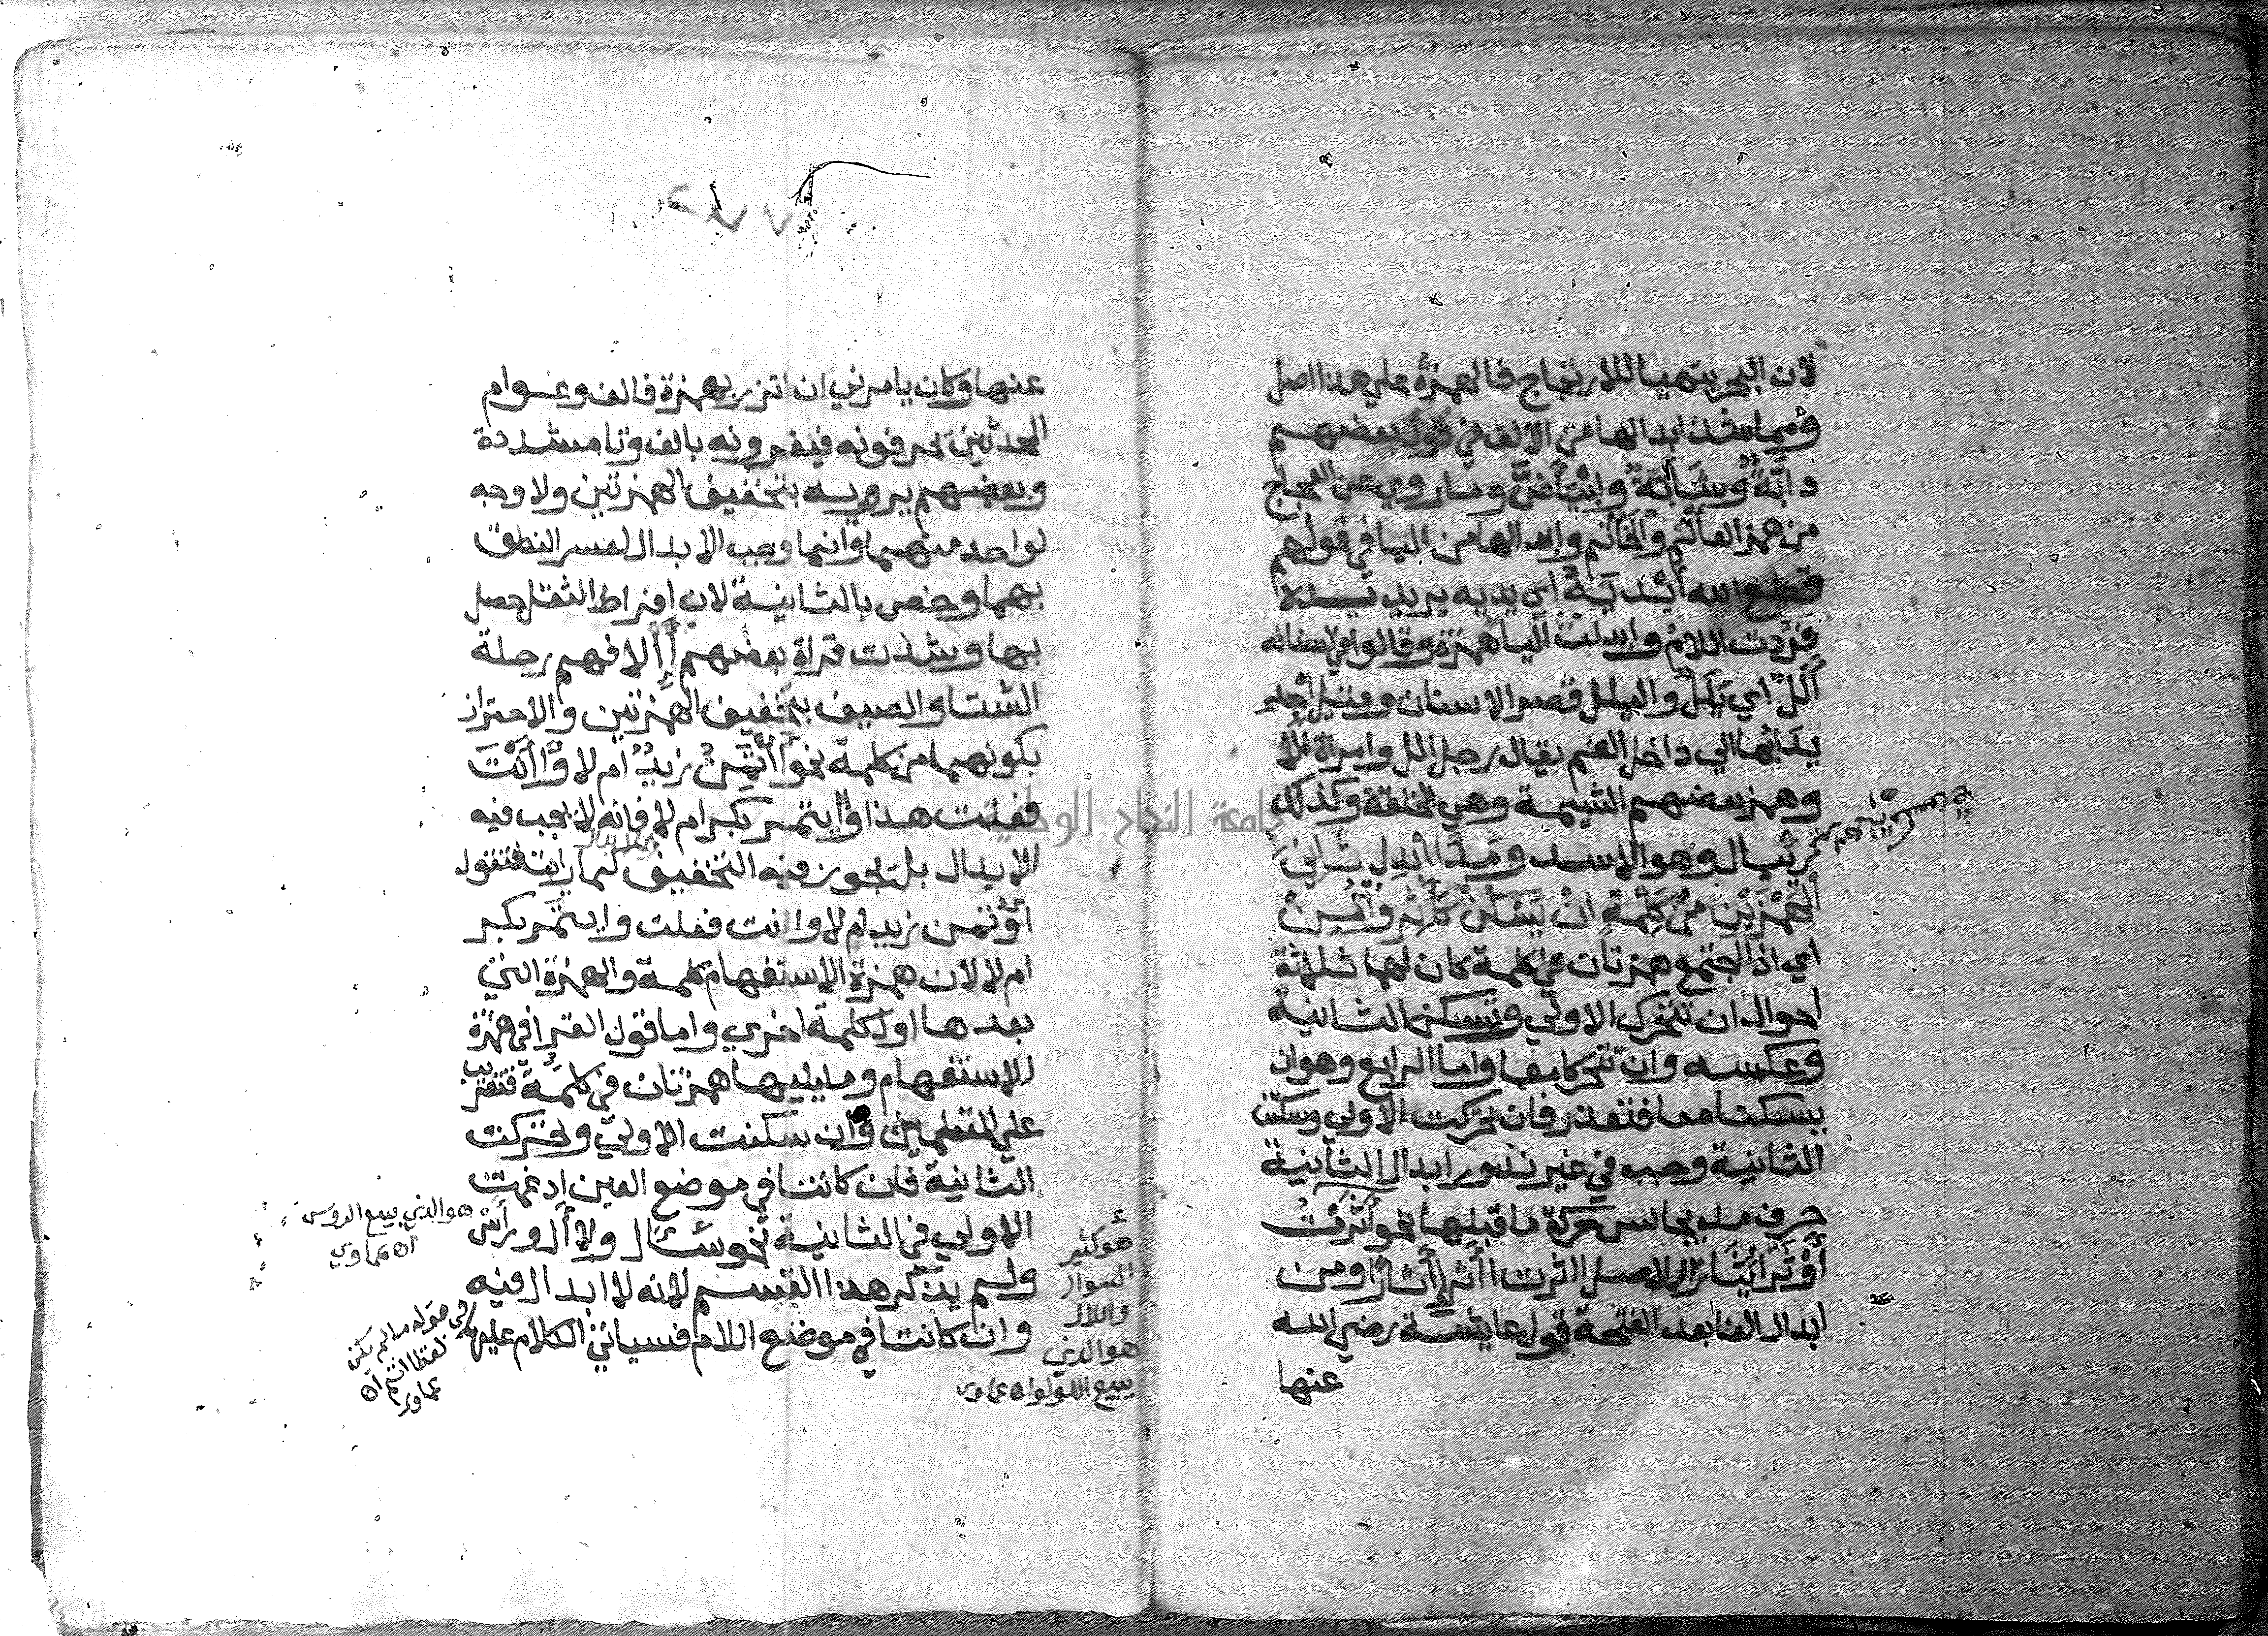 لان البحر يتهيا للارتجاج فالهمزة علي هذا اصل
ومما شذ ابدالها من الالف في قول بعضهم
دأبَّة وشأبَّة وابيأضَّ وما روي عن العجاج
من همز العألم والخأتم وابدالها من اليا في قولهم
قطع الله أديه اي يديه يريد يده
فردت اللام وابدلت اليا همزة وقالوا في اسنانه
ألل اي يلل واليلل قصر الاسنان وقيل
الي داخل الفم يقال رجل الل وامراة اللا
وهمز بعضهم الشيمة وهي الخلقة وكذلك
رئبال وهو الاسد ومدا ابدل ثاني
الهمزين من كلمة ان يسكن كآثر وائتمن
اي اذا اجتمع همزتان في كلمة كان لهما ثلاثة
احوال ان تتحرك الاولي وتسكن الثانية
وعكسه وان تتحركا معا واما الرابع وهو ان
يسكنا معا فتعذر فان تحركت الاولي وسكنت
الثانية وجب في غير ندور ابدال الثانية
حرف مد يجانس حركة ما قبلها نحو آثرت
أوثر ايثارا الاصل أأثرت أأثر إأثارا ومن
ابدال الفا بعد الفتحة قول عايشة رضي الله
عنها
عنها وكان يامرني ان اتزر بهمزة فالف وعوام
المحدثين يحرفونه فيقرونه بالف وتا مشددة
وبعضهم يرويه بتحقيق الهمزتين ولا وجه
لواحد منهما وانما وجب الابدال لعسر النطق
بهما وخص بالثانية لان افراط الثقل حصل
بها وشذت قراة بعضهم أألافهم رحلة
الشتا والصيف بتحقيق الهمزتين والاحتراز
بكونهما من كلمة نحو أأتمن زيد ام لا وأأنت
فعلت هذا وأايتمر بكر ام لا فانه لا يجب فيه
الابدال بل تجوز فيه التحقيق كما رايت فتقول
أوتمن زيد ام لا وانت فعلت وايتمر بكر
ام لا لان همزة الاستفهام كلمة والهمزة التي
بعدها اول كلمة اخري واما قول القرا في همزة
الاستفهام وما يليها همزتان في كلمة فتقريب
علي المتعلمين وان سكنت الاولي وتحركت
الثانية فان كانت في موضع العين ادغمت
الاولي في الثانية نحو سئال ولاأل ورأس
ولم يذكر هذا القسم لانه لا ابدال فيه
وان كانت في موضع اللام فسياتي الكلام عليها
هو الذي يبيع الروس
اه عماوي
هو كثير
السوال
واللال
هو الذي
يبيع اللولو اه عماوي
في قوله ما لم يكن
لفظا اتم اه
عماوي
جامعة النجاح الوطنية